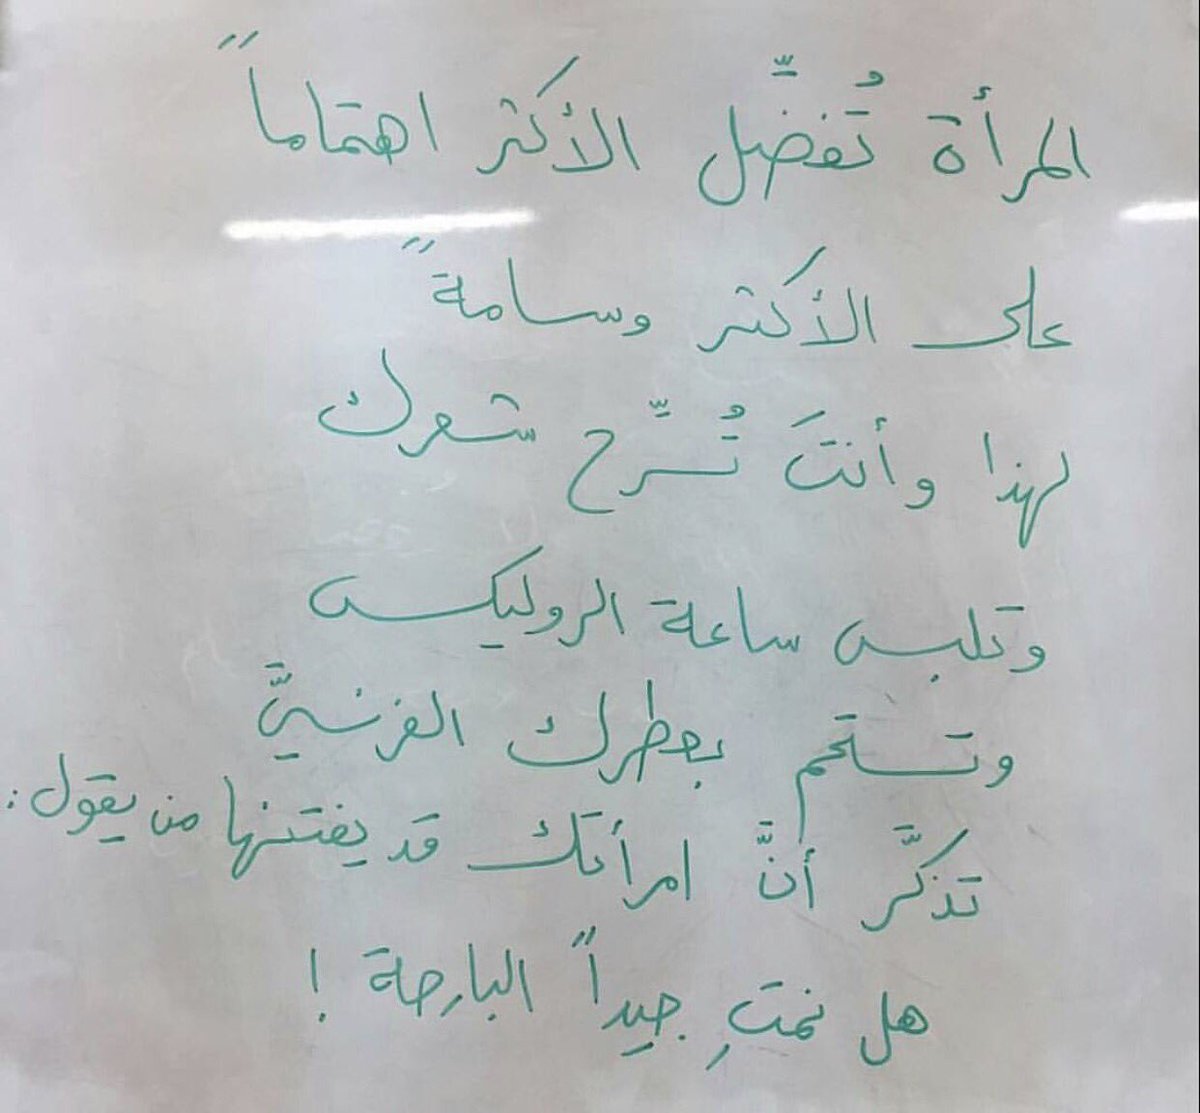 المرأة تُفضِّل الأكثر اهتماماً
على الأكثر وسامةً
لهذا وأنتَ تُسرِّح شعرك
وتلبس ساعة الروليكس
وتستحم بعطرك الفرنسيَّ
تذكَّر أنَّ امرأتك قد يفتنها من يقول :
هل نمتِ جيداً البارحة !